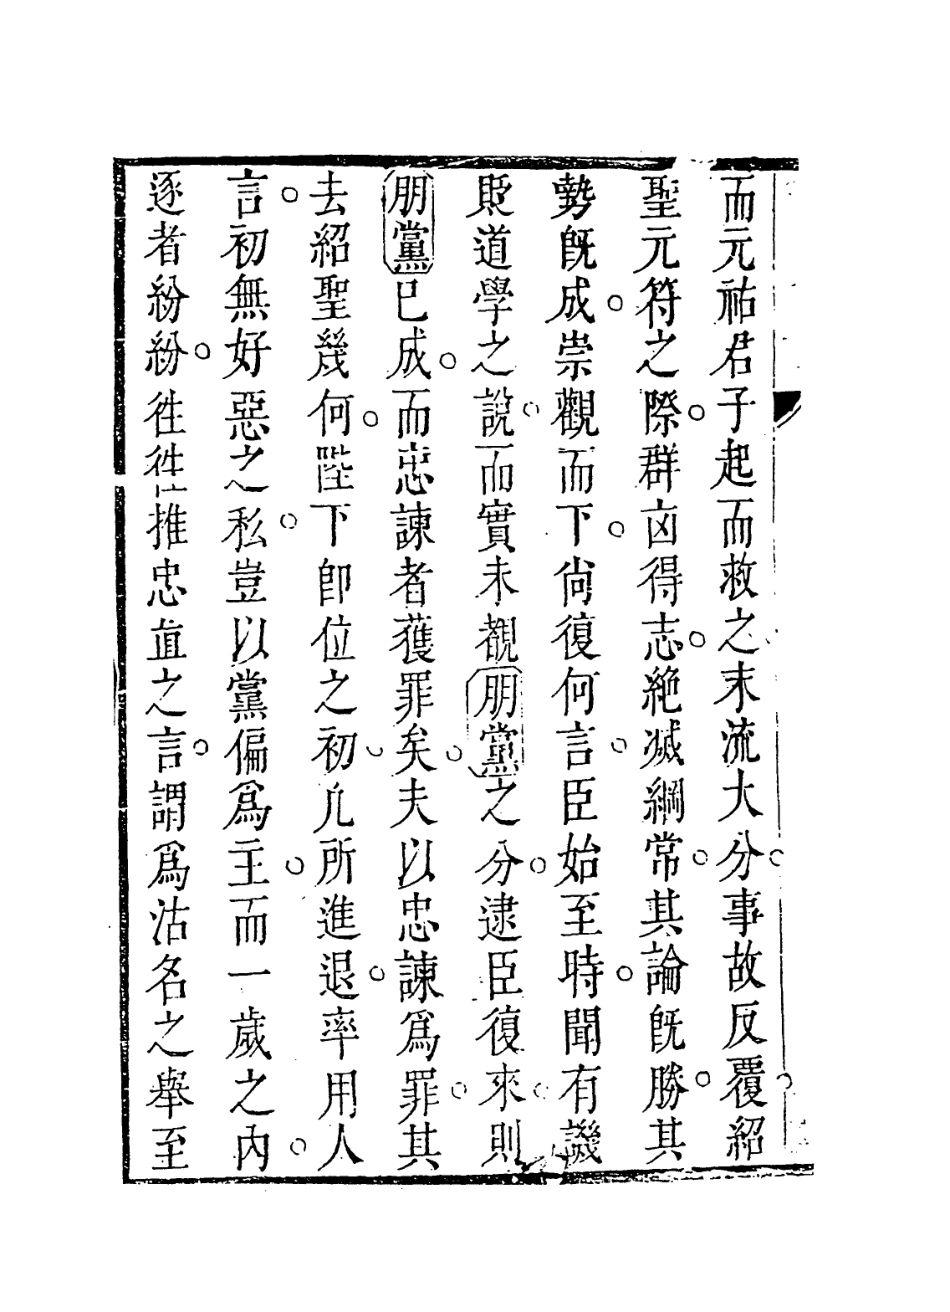 而元祐君子起而救之末流大分事故反覆紹
聖元符之際群凶得志絶滅綱常其論既勝其
勢既成崇觀而下尚復何言臣始至時聞有譏
貶道學之說而實未覩朋黨之分逮臣復來則
朋黨已成而忠諫者獲罪矣夫以忠諫爲罪其
去紹聖幾何陛下卽位之初凢所進退率用人
言初無好惡之私豈以黨偏爲主而一歲之內
逐者紛紛徃徃推忠直之言謂爲沽名之舉至